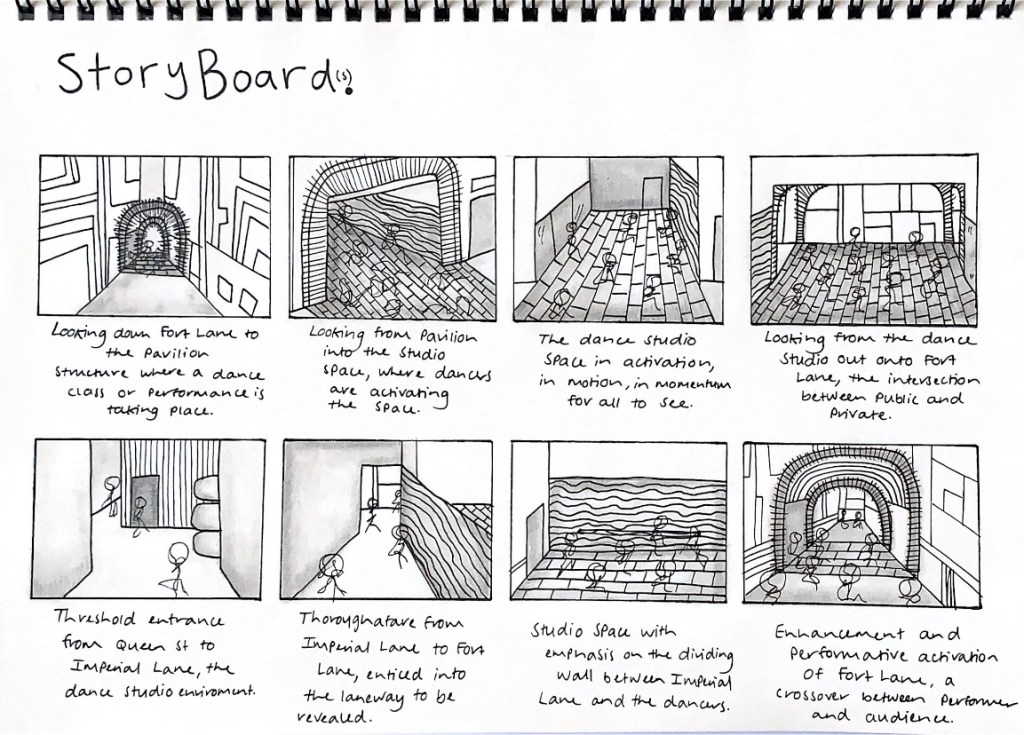 StoryBoard(s).
Looking down Fort Lane to
the Pavilion
structure where a dance
class or performance is
taking place.
Looking from Pavilion
into the studio
space, where dancers
are activating
the space.
The dance studio
space in activation,
in motion, in momentum
for all to see.
Looking from the dance
studio out onto Fort
Lane, the intersection
between public and
private.
Threshold entrance
from Queen St to
Imperial Lane, the
dance studio enviroment.
Thoroughatare from
Imperial Lane to Fort
Lane, enticed into
the laneway to be
revealed.
Studio space with
emphasis on the dividing
wall between Imperial
Lane and the dancers.
Enhancement and
performative activation
of Fort Lane, a
crossover between performer
and audience.